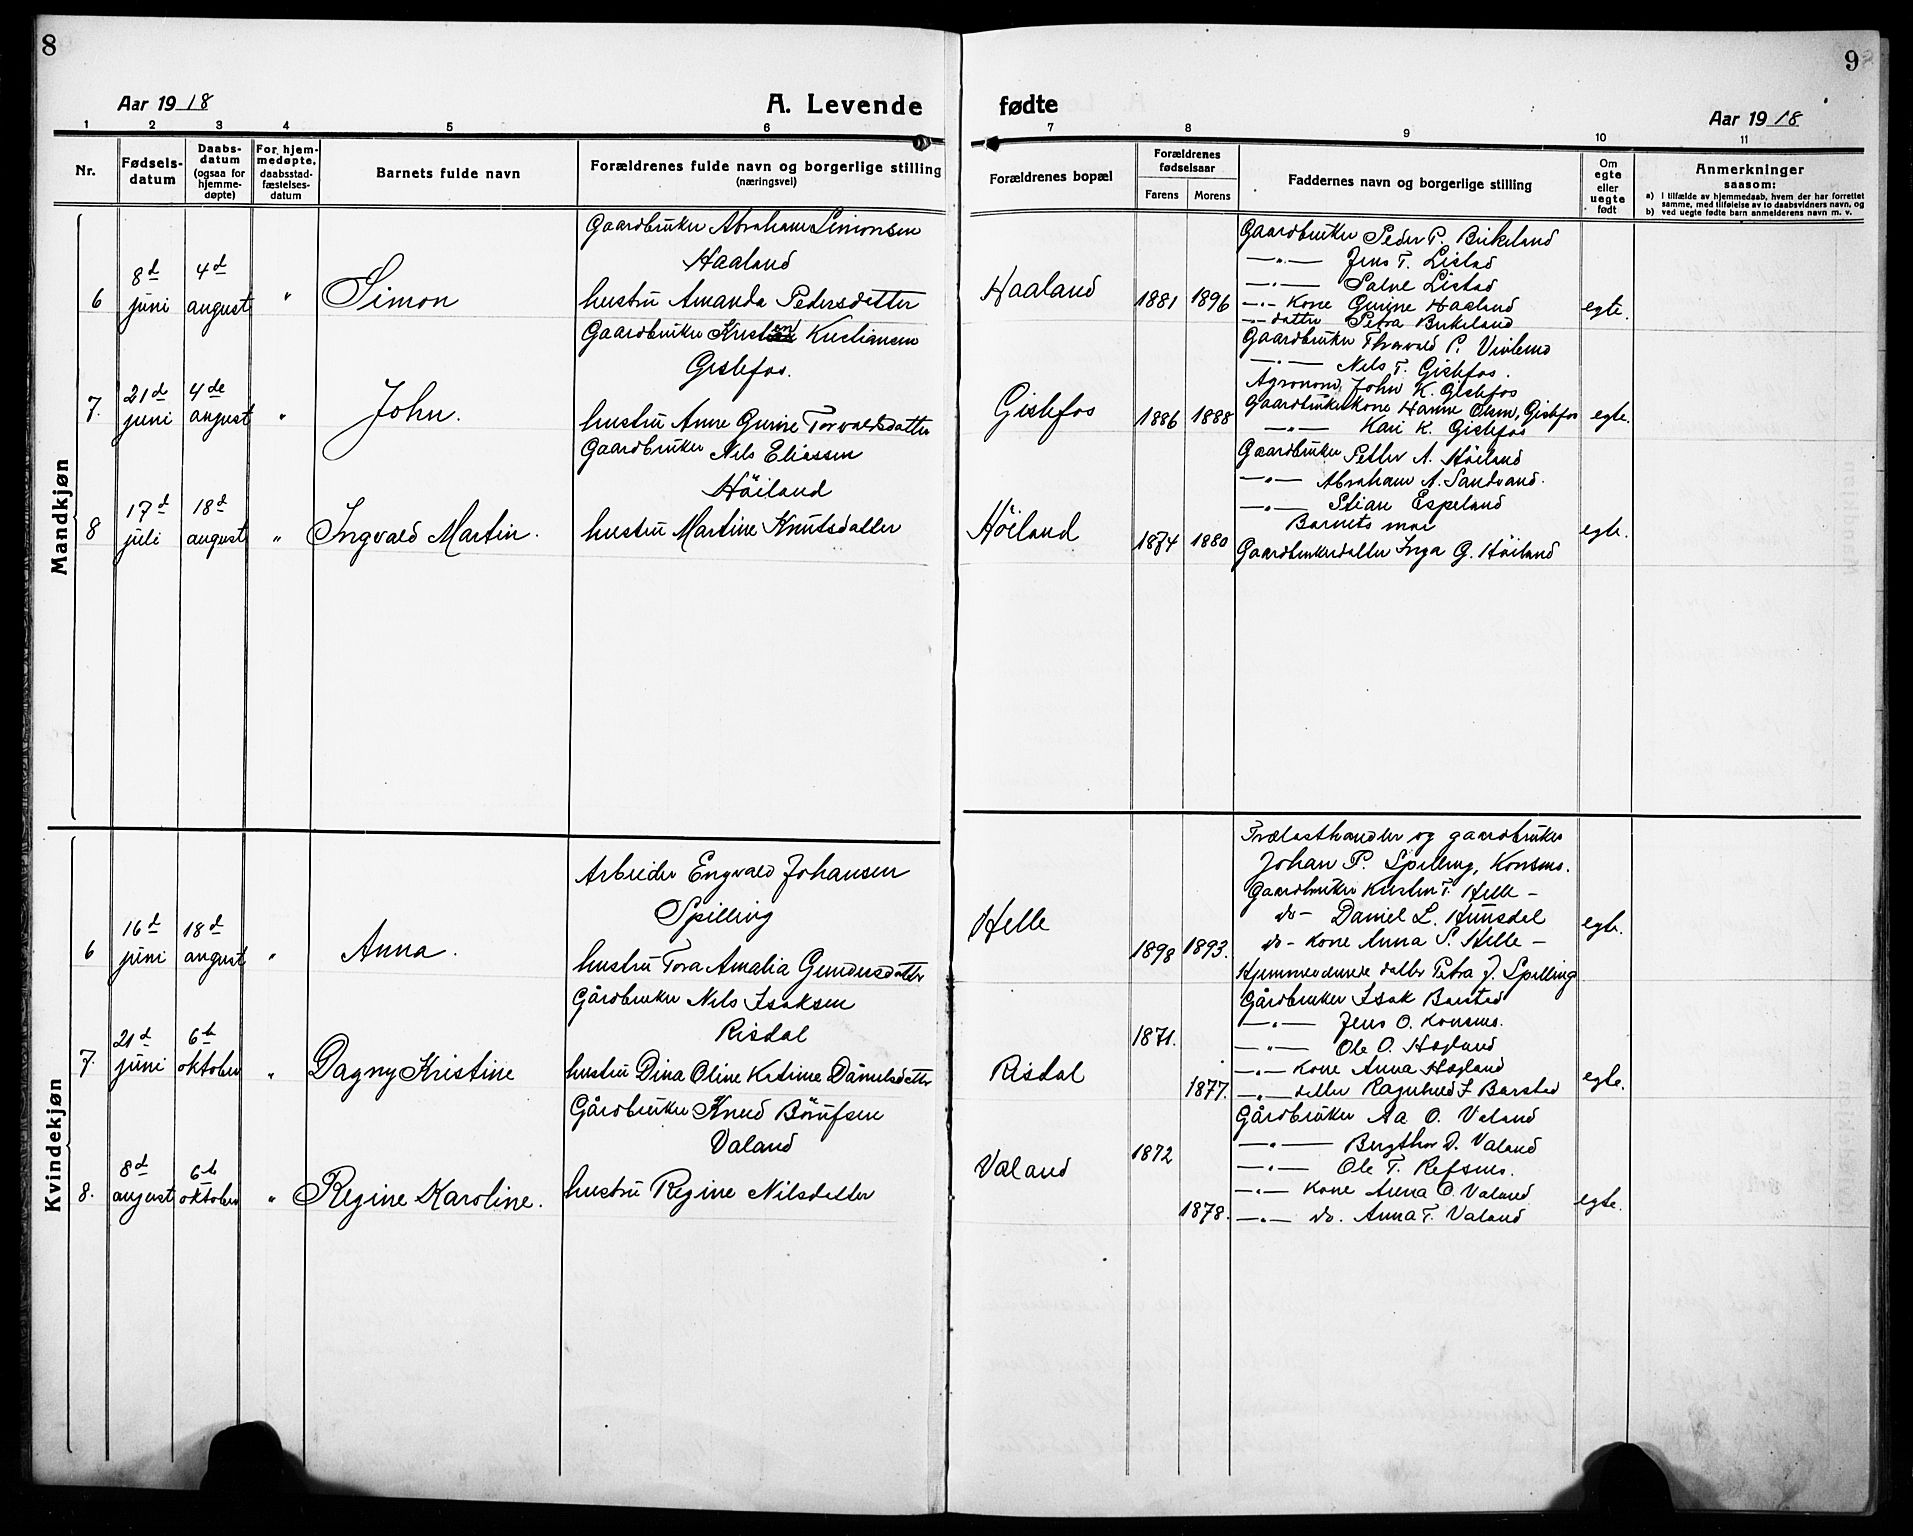 8
Aar 1918
A. Levende
1 2 3 4 5 6
Nr.
Fødsels-
datum
Daabs-
datum
(ogsaa for
hjemme-
døpte)
For hjem-
medøpte,
daabsstad-
fæstelses-
datum
Barnets fulde navn
Forældrenes fulde navn og borgerlige stilling
(næringsvei)
Mandkjøn
6
8d
juni
4d
august
"
Simon
Gaardbruker Abraham Simonsen
Haaland
hustru Amanda Pedersdatter
7.
21d
juni
4de
august
"
John.
Gaardbruker Kristen Kristiansen
Gislefos.
hustru Anne Gurine Torvaldsdatter
8
17d
juli
18d
august
"
Ingvald Martin.
Gaardbruker Nils Eliassen
Höiland
hustru Martine Knutsdatter
Kvindekjøn
6
16d
juni
18d
august
"
Anna.
Arbeider Engvald Johansen
Spilling
hustru Tora Amalia Gundersdatter
7.
21d
juni
6te
oktober
"
Dagny Kristine
Gårdbruker Nils Isaksen
Risdal
hustru Dina Oline Katrine Danielsdatter
8.
8d
august
6te
oktober
"
Regine Karoline.
Gårdbruker Knud
Valand
hustru Regine Nilsdatter
9
fødte
Aar 1918
7 8 9 10 11
Forældrenes bopæl
Forældrenes
fødselsaar
Farens Morens
Faddernes navn og borgerlige stilling
Om
egte
eller
uegte
født
Anmerkninger
saasom:
a) I tilfælde av hjemmedaab, hvem der har forrettet
samme, med tilføielse av to daabsvidners navn, og
b) ved uegte fødte barn anmelderens navn m. v.
Haaland
1881 1896
Gaardbruker Peder P. Birkeland
—"— Jens T. Listad
—"— Salve Listad
—"— Kone Gurine Haaland
—"— datter Petra Birkeland
egte.
Gislefos
1886 1888
Gaardbruker Thorvald P.
—"— Nils T. Gislefos.
Agronom John K. Gislefos
Gaardbrukerkone Hanne Olsen, Gislefos
—"— Kari K. Gislefos
egte.
Höiland
1874 1880
Gaardbruker Petter A. Höiland
—"— Abraham A. Sandvand.
—"— Stian Espeland
Barnets mor
Gaardbrukerdatter Inga G. Höiland
egte.
Helle
1898 1893.
Trælasthandler og gaardbruker
Johan P. Spilling, Konsmo.
Gaardbruker Kristen T. Helle —
do — Daniel L. Hunsdal
do — Kone Anna S. Helle —
Hjemmeværende datter Petra J. Spilling
egte.
Risdal
1871.
1877.
Gårdbruker Isak Barstad
—"— Jens O. Konsmo.
—"— Ole O. Hogland
—"— Kone Anna Hogland
—"— datter Ragnhild I Barstad
egte.
Valand
1872
1878.
Gårdbruker Aa O. Valand
—"— Bergthor D. Valand
—"— Ole T. Refsnes.
—"— Kone Anna O. Valand
—"— do. Anna T. Valand
egte.